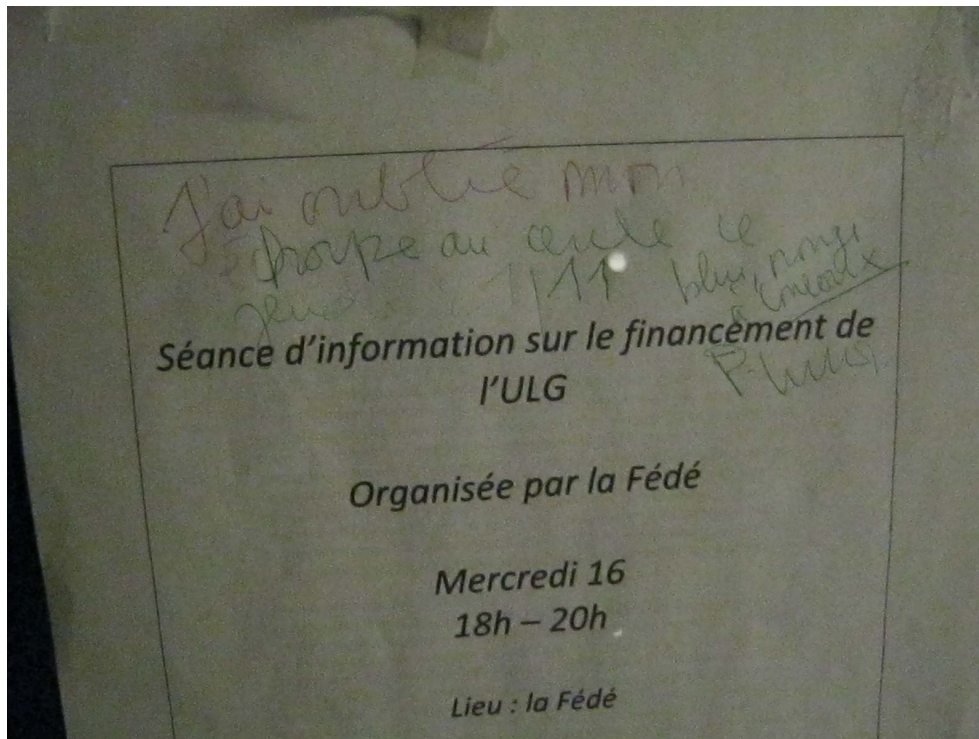 J'ai oublié mon
au cercle ce
Séance d'information sur le financement de
l'ULG
Organisée par la Fédé
Mercredi 16
18h – 20h
Lieu : la Fédé